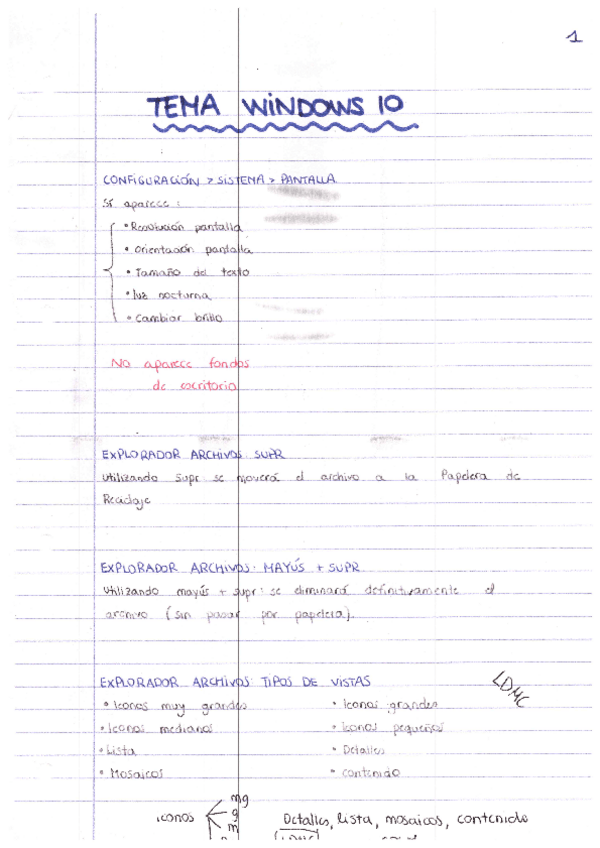 1
TEMA WINDOWS 10
CONFIGURACIÓN > SISTEMA > PANTALLA
Sí aparece:
• Resolución pantalla
• Orientación pantalla
• Tamaño del texto
• luz nocturna
• Cambiar brillo
No aparece fondos
de escritorio
EXPLORADOR ARCHIVOS SUPR
Utilizando supr se moverá el archivo a la Papelera de
Reciclaje
EXPLORADOR ARCHIVOS: MAYÚS + SUPR
Utilizando mayús + supr: se eliminará definitivamente el
archivo (sin pasar por papelera).
EXPLORADOR ARCHIVOS: TIPOS DE VISTAS
LDMC
• Iconos muy grandes • Iconos grandes
• Iconos medianos • Iconos pequeños
• Lista • Detalles
• Mosaicos • Contenido
mg
iconos g Detalles, lista, mosaicos, contenido
m